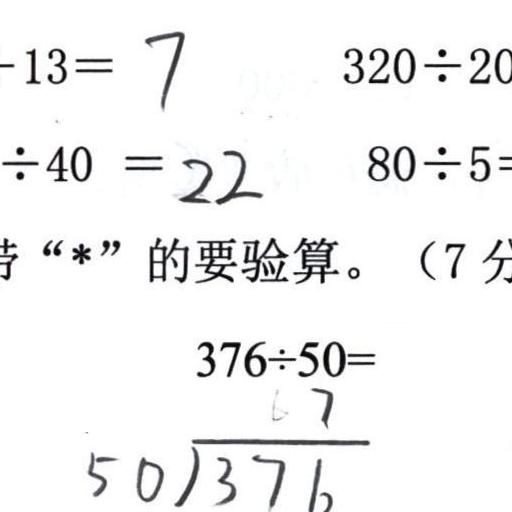 13= 7 320÷20
÷40 =22 80÷5=
带“*”的要验算。（7分
376÷50=
6 7
50)376